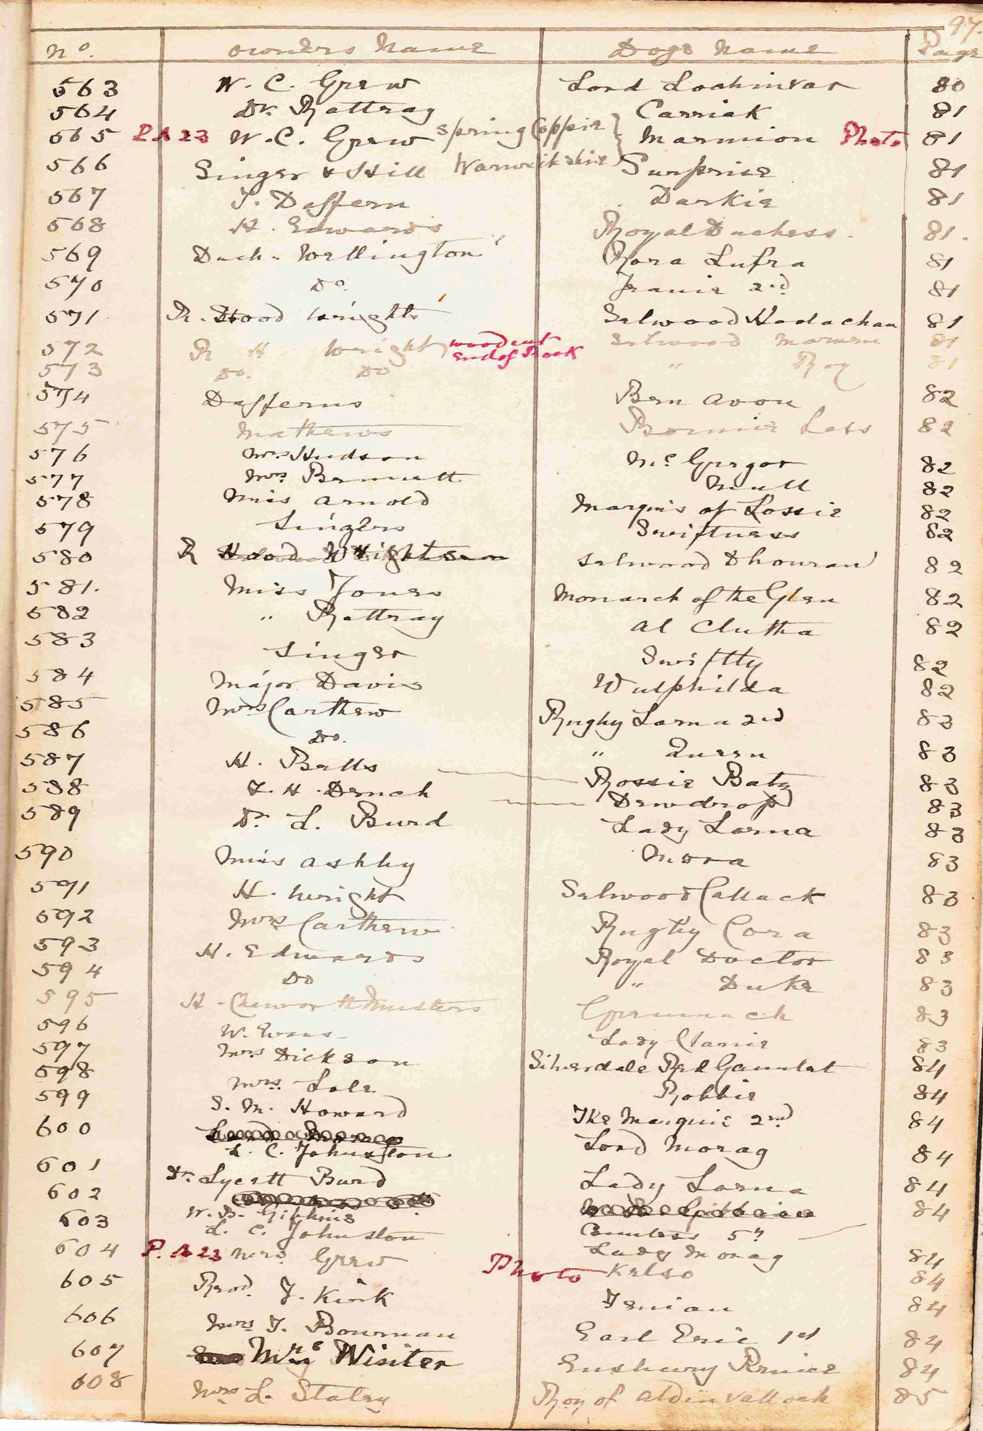 97.
No. owners Name Dogs Name Page
563 W. C. Grew Lord Lochinvar 80
564 Dr. Rattray Carrick 81
565 P.A 23 W. C. Grew Spring Coppice } Marmion Photo 81
566 Singer & Hill Warwickshire Surprise 81
567 T. Daffern Darkie 81
568 H. Edwards Royal Duchess. 81.
569 Duch. Wellington Rora Lufra 81
570 Do. 2nd 81
571 R. Hood Wright Selwood 81
572 R H Wright woodcut Selwood Morven 81
573 Do. Do End of Book " Roy 81
574 Dafferns Ben Avon 82
575 Mathews Bonnie Less 82
576 Mrs Hudson McGregor 82
577 Mrs Bennett Mull 82
578 Miss Arnold Marquis of Lossie 82
579 Singers Swiftness 82
580 R Hood Wright Selwood Dhouran 82
581. Miss Jones Monarch of the Glen 82
582 " Rattray Al Clutha 82
583 Singer Swiftly 82
584 Major Davis Wulphilda 82
585 Mrs Carthew Rugby Lorna 2nd 83
586 Do. " Queen 83
587 H. Batts Rossie Batz 83
588 F. H. Dench Dewdrop 83
589 Dr. L. Burd Lady Lorna 83
590 Miss Ashby Mora 83
591 H. Wright Selwood Callack 83
592 Mrs Carthew Rugby Cora 83
593 H. Edwards Royal Doctor 83
594 Do " Duke 83
595 H. Chaworth Musters 83
596 W. Evans Lady Clarie 83
597 Mrs Dickson Silverdale Red Gauntlet 84
598 Mrs. Lole Robbie 84
599 S. M. Howard The Marquis 2nd 84
600 L. C. Johnston Lord Morag 84
601 Dr. Lycett Burd Lady Lorna 84
602 W. B. Gibbins Countess 5th 84
603 L. C. Johnston Lady Morag 84
604 P. A 23 Mrs. Grew Photo Kelso 84
605 Revd. J. Kirk Fenian 84
606 Mrs T. Bowman Earl Eric 1st 84
607 Mrs Winter 84
608 Mrs L. Staley Roy of Aldinvalloch 85